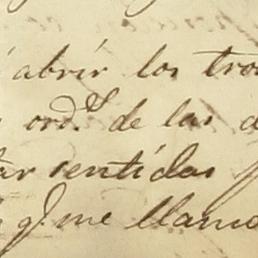 abrír los tro
ord.^s de las d
ar sentidas
q.^e me llama